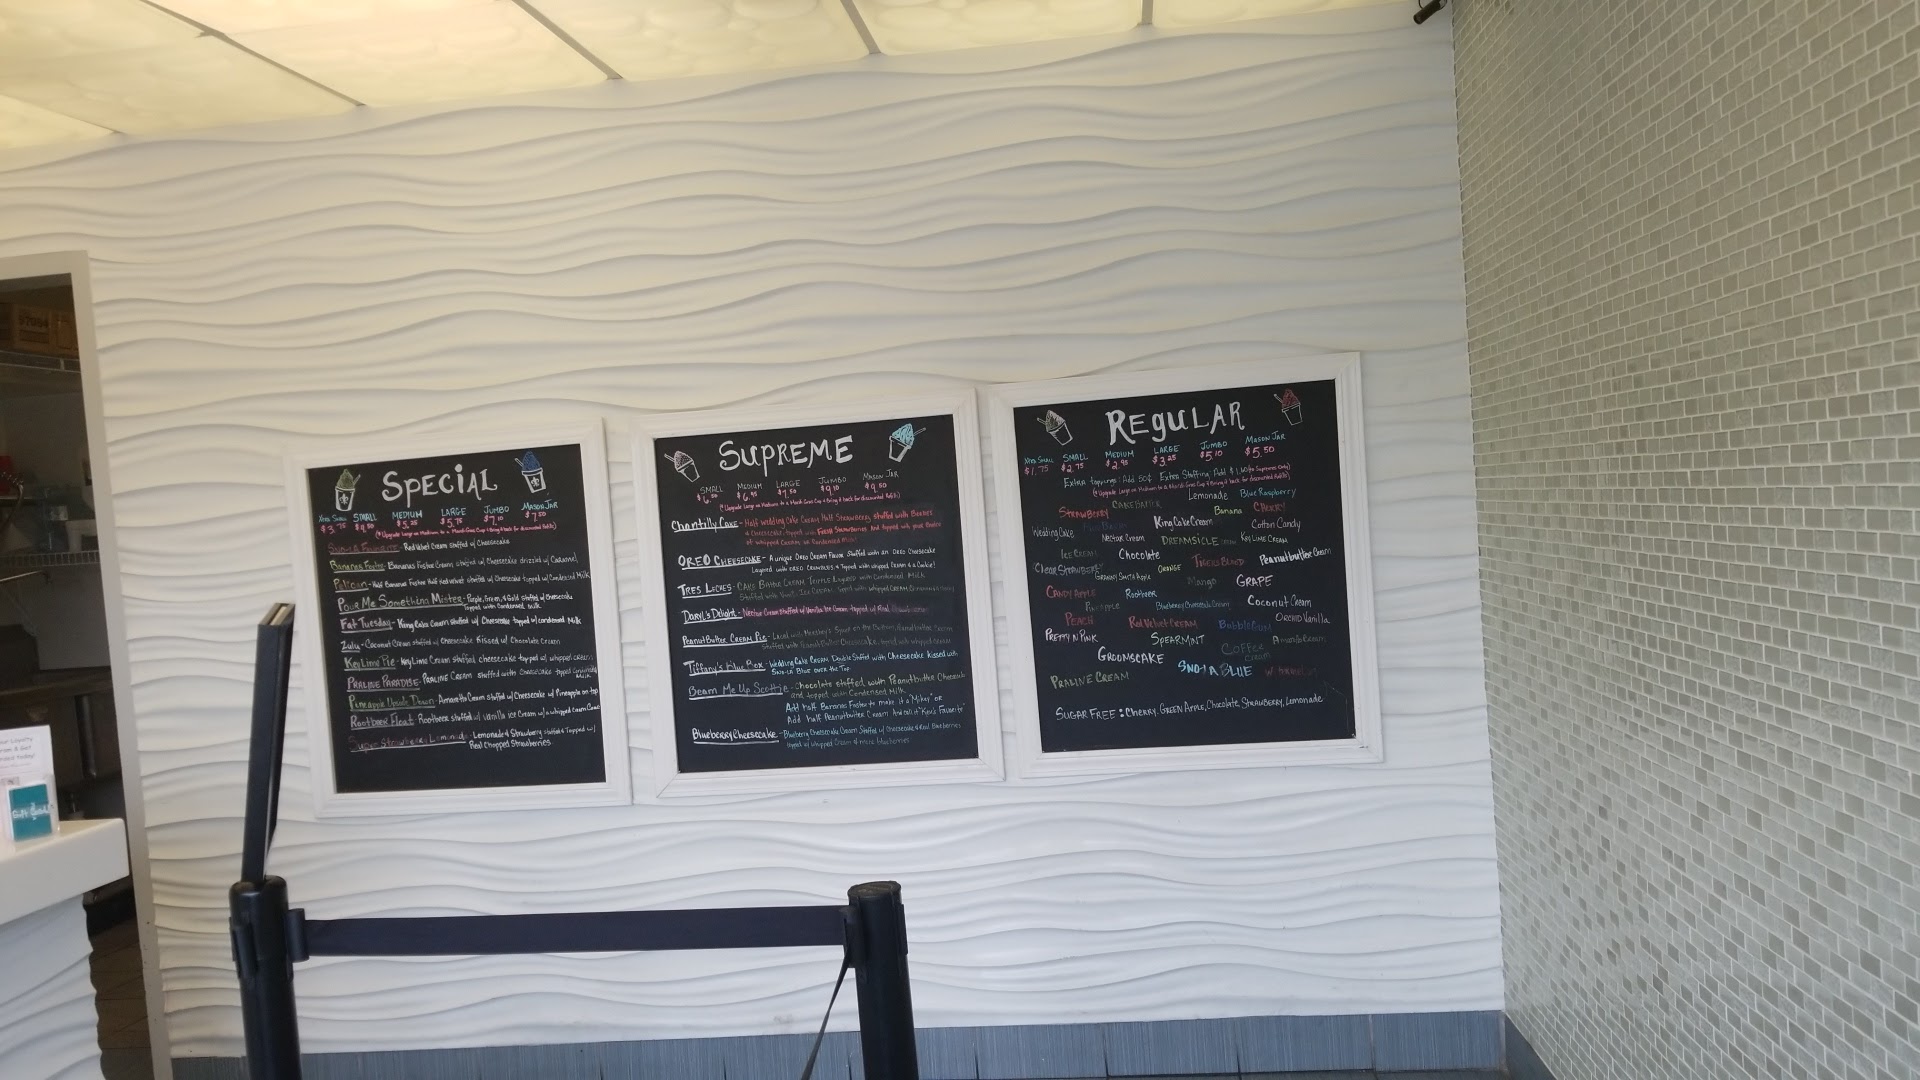 SPECIAL
XTRA SMALL SMALL MEDIUM LARGE JUMBO MASON JAR
$3.75 $4.50 $5.25 $5.75 $7.10 $7.50
Favorite - Red Velvet Cream stuffed w/ Cheesecake
Bananas Foster - Bananas Foster Cream stuffed w/ Cheesecake drizzled w/ Caramel
Pelican - Half Bananas Foster Half Red velvet stuffed w/ Cheesecake topped w/ Condensed Milk
Pour Me Something Mister - Purple, Green, & Gold stuffed w/ Cheesecake
topped with Condensed milk
Fat Tuesday - King Cake Cream stuffed w/ Cheesecake topped w/ condensed Milk
Zulu - Coconut Cream stuffed w/ Cheesecake Kissed w/ Chocolate Cream
Key Lime Pie - Key Lime Cream stuffed cheesecake topped w/ whipped cream
PRALINE PARADISE - PRALINE CREAM stuffed with cheesecake topped condensed
MILK
Pineapple Upside Down - Amaretto Cream stuffed w/ Cheesecake w/ Pineapple on top
Rootbeer Float - Rootbeer stuffed w/ vanilla ice cream w/ a whipped cream
Super Strawberry Lemonade - Lemonade & Strawberry stuffed & Topped w/
Real Chopped Strawberries
SUPREME
SMALL MEDIUM LARGE JUMBO MASON JAR
$6.50 $6.95 $7.50 $9.10 $9.50
(*Upgrade Large or Medium to a Mardi Gras Cup & Bring it back for discounted Refills)
Chantilly Cake - Half Wedding Cake Cream Half Strawberry stuffed with Berries
& Cheesecake, topped with Fresh Strawberries And topped with
of whipped Cream or Condensed Milk!
OREO CHEESECAKE - A unique Oreo Cream Flavor Stuffed with an Oreo Cheesecake
Layered with OREO CRUMBLES & Topped with whipped Cream & a Cookie!
TRES LECHES - CAKE Batter CREAM Layered with Condensed Milk
Stuffed with Vanilla Ice Cream, Topped with whipped CREAM,
Daryl's Delight - Nectar Cream Stuffed w/ Vanilla Ice Cream topped w/ Real
PEANUT BUTTER CREAM PIE - Laced with Hershey's Syrup on the Bottom, Peanut butter Cream
Stuffed with Peanut Butter Cheesecake, topped with whipped cream
Tiffany's Blue Box - Wedding Cake CREAM Double Stuffed with Cheesecake kissed with
SNO-LA Blue over the Top
Beam Me Up Scottie - Chocolate stuffed with Peanutbutter Cheesecake
and topped with Condensed Milk.
Add half Bananas Foster to make it a "Mikey" or
Add half Peanutbutter Cream And call it "Kev's Favorite"
Blueberry Cheesecake - Blueberry Cheesecake Cream Stuffed w/ Cheesecake & Real Blueberries
topped w/ whipped Cream & more blueberries
REGULAR
XTRA SMALL SMALL MEDIUM LARGE JUMBO MASON JAR
$1.75 $2.75 $2.95 $3.25 $5.10 $5.50
Extra toppings: Add 50¢ Extra Stuffing Add $1.60
(*Upgrade Large or Medium to a Mardi Gras Cup & Bring it back for discounted Refills)
Lemonade Blue Raspberry
STRAWBERRY CAKE BATTER Banana CHERRY
Wedding Cake King Cake Cream Cotton Candy
Nectar Cream DREAMSICLE KEY LIME CREAM
ICE CREAM Chocolate TIGERS BLOOD Peanutbutter Cream
Clear STRAWBERRY GRANNY SMITH Apple ORANGE
Mango GRAPE
CANDY APPLE Rootbeer
Pineapple Blueberry Cheesecake Cream Coconut Cream
PEACH Red Velvet CREAM Bubblegum ORCHID Vanilla
PRETTY N PINK SPEARMINT Amaretto Cream
GROOMSCAKE COFFEE
CREAM
SNO-LA BLUE
PRALINE CREAM
SUGAR FREE: CHERRY, GREEN APPLE, Chocolate, STRAWBERRY, Lemonade